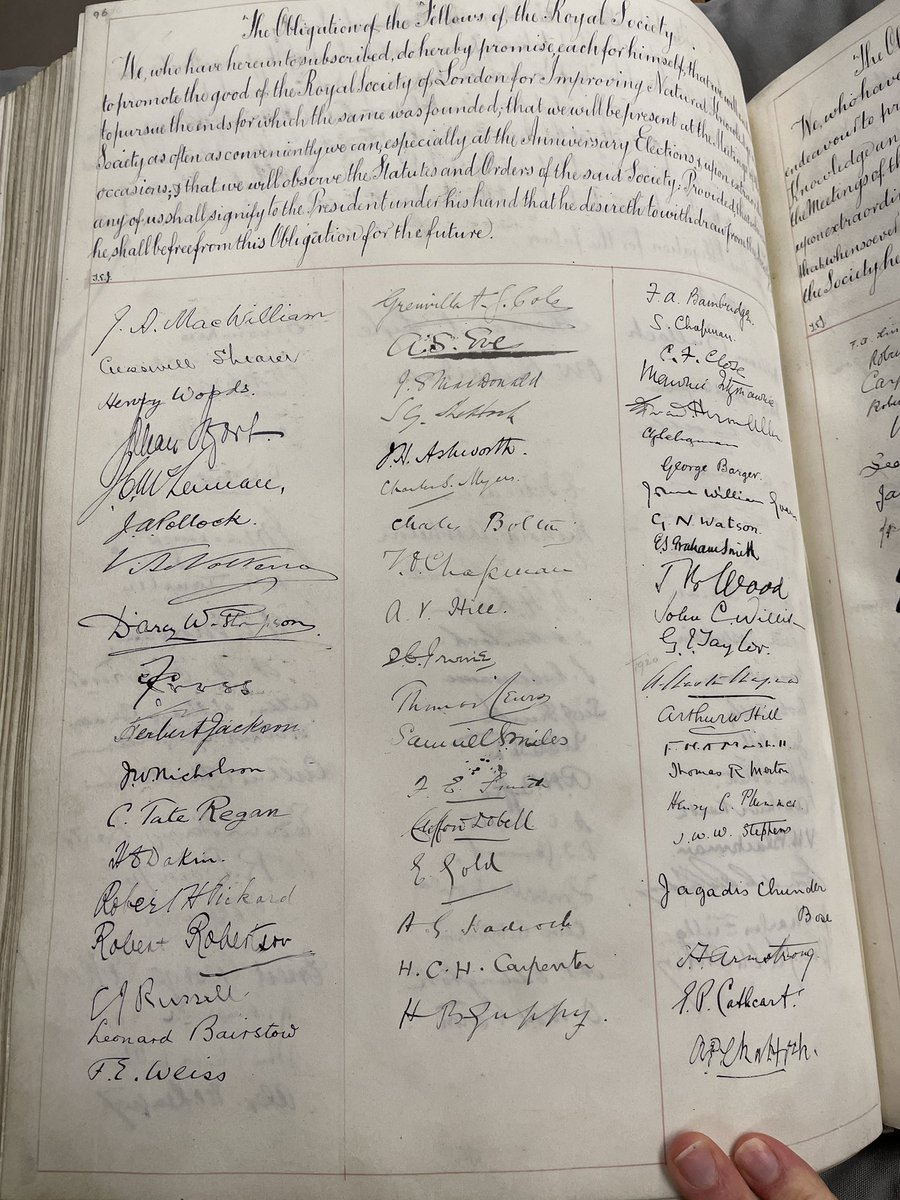 96
The Obligation of the Fellows of the Royal Society.
We, who have hereunto subscribed, do hereby promise, each for himself, that we will
to promote the good of the Royal Society of London for Improving Natural Knowledge
to pursue the ends for which the same was founded; that we will be present at the Meetings
Society as often as conveniently we can, especially at the Anniversary Elections, & upon
occasions; & that we will observe the Statutes and Orders of the said Society: Provided, that
any of us shall signify to the President under his hand that he desireth to withdraw from the
he shall be free from this Obligation for the future.
J. A. MacWilliam
Cresswell Shearer
Henry Woods.
J. C. McLennan,
J. A. Pollock.
D'arcy W. Thompson
Herbert Jackson
J W Nicholson
C. Tate Regan
H D Dakin.
Robert H Pickard
Robert Robertson
Russell
Leonard Bairstow
F. E. Weiss
Grenville A. J. Cole
A. S. Eve
J. S MacDonald
J. H. Ashworth.
Charles S. Myers.
Charles Bolton
Chapman
A. V. Hill.
J C Irvine
Thomas Lewis
Samuel Smiles
F. E. Smith
Clifford Dobell
E. Gold
H. C. H. Carpenter
H B Guppy.
F. A. Bainbridge.
S. Chapman.
C. F. Close
Maurice Fitzmaurice
George Barger.
John William Evans
G. N. Watson
G. S. Graham Smith
T B Wood
John C. Willis
G. I. Taylor.
1920
Arthur W Hill
F. H. A Marshall
Thomas R Merton
Henry C. Plummer
J. W. W. Stephens
Jagadis Chunder
Bose
Armstrong
E. P. Cathcart.
The O
We, who have
endeavour to pr
Knowledge an
the Meetings of th
upon extraordin
that whensoever
the Society he